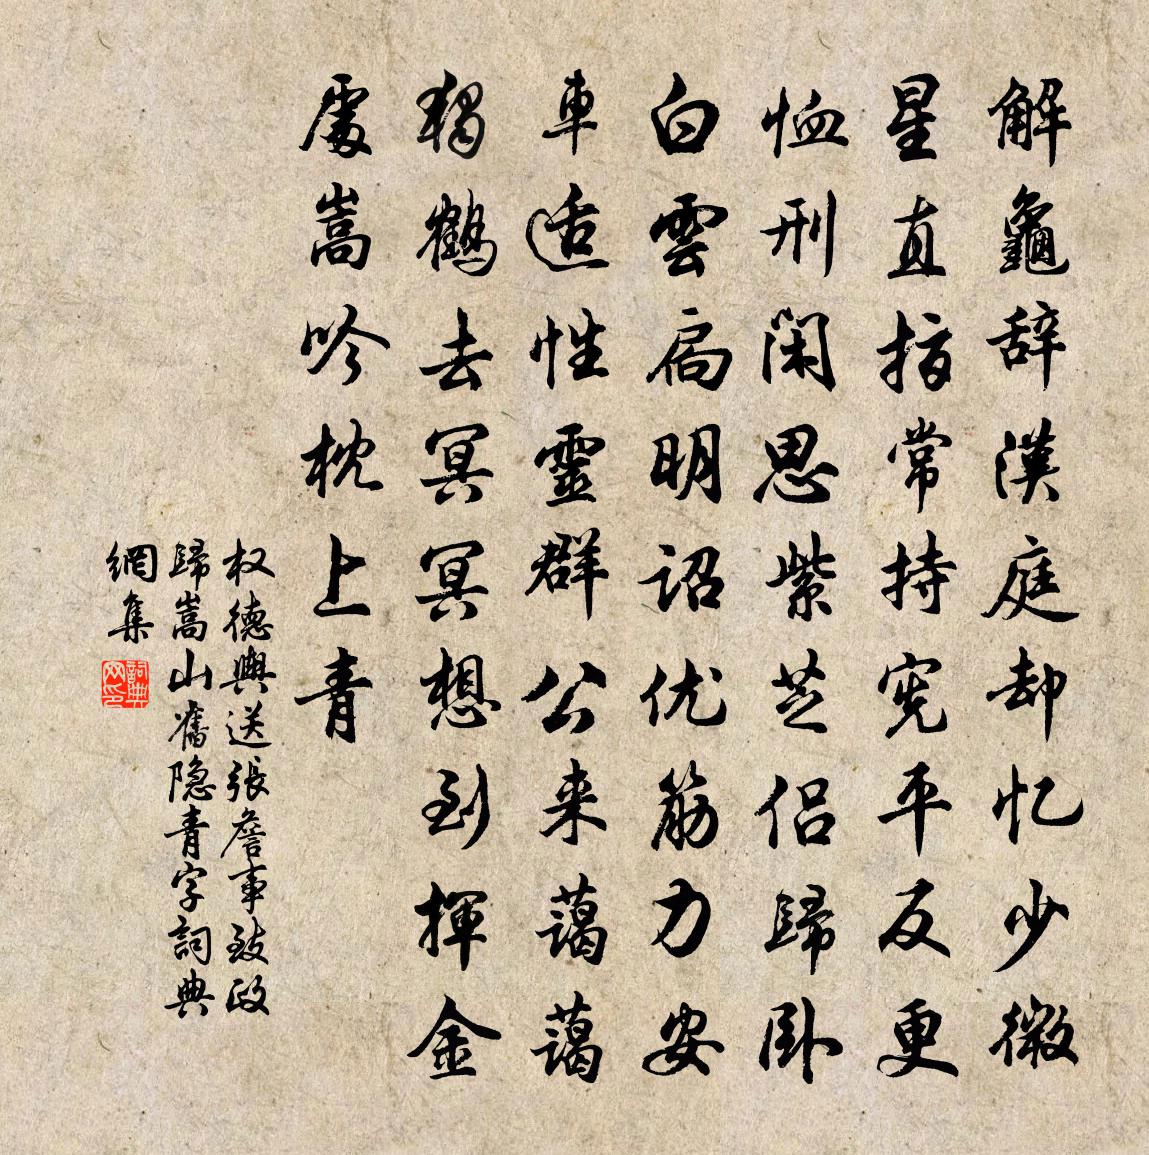 解龜辞漢庭却忆少微
星直指常持宪平反更
恤刑闲思紫芝侣歸卧
白雲扃明詔优筋力安
車适性靈群公来藹藹
獨鶴去冥冥想到揮金
處嵩吟枕上青
权德輿送張詹事致政
歸嵩山舊隐青字詞典
網集
詞典
网